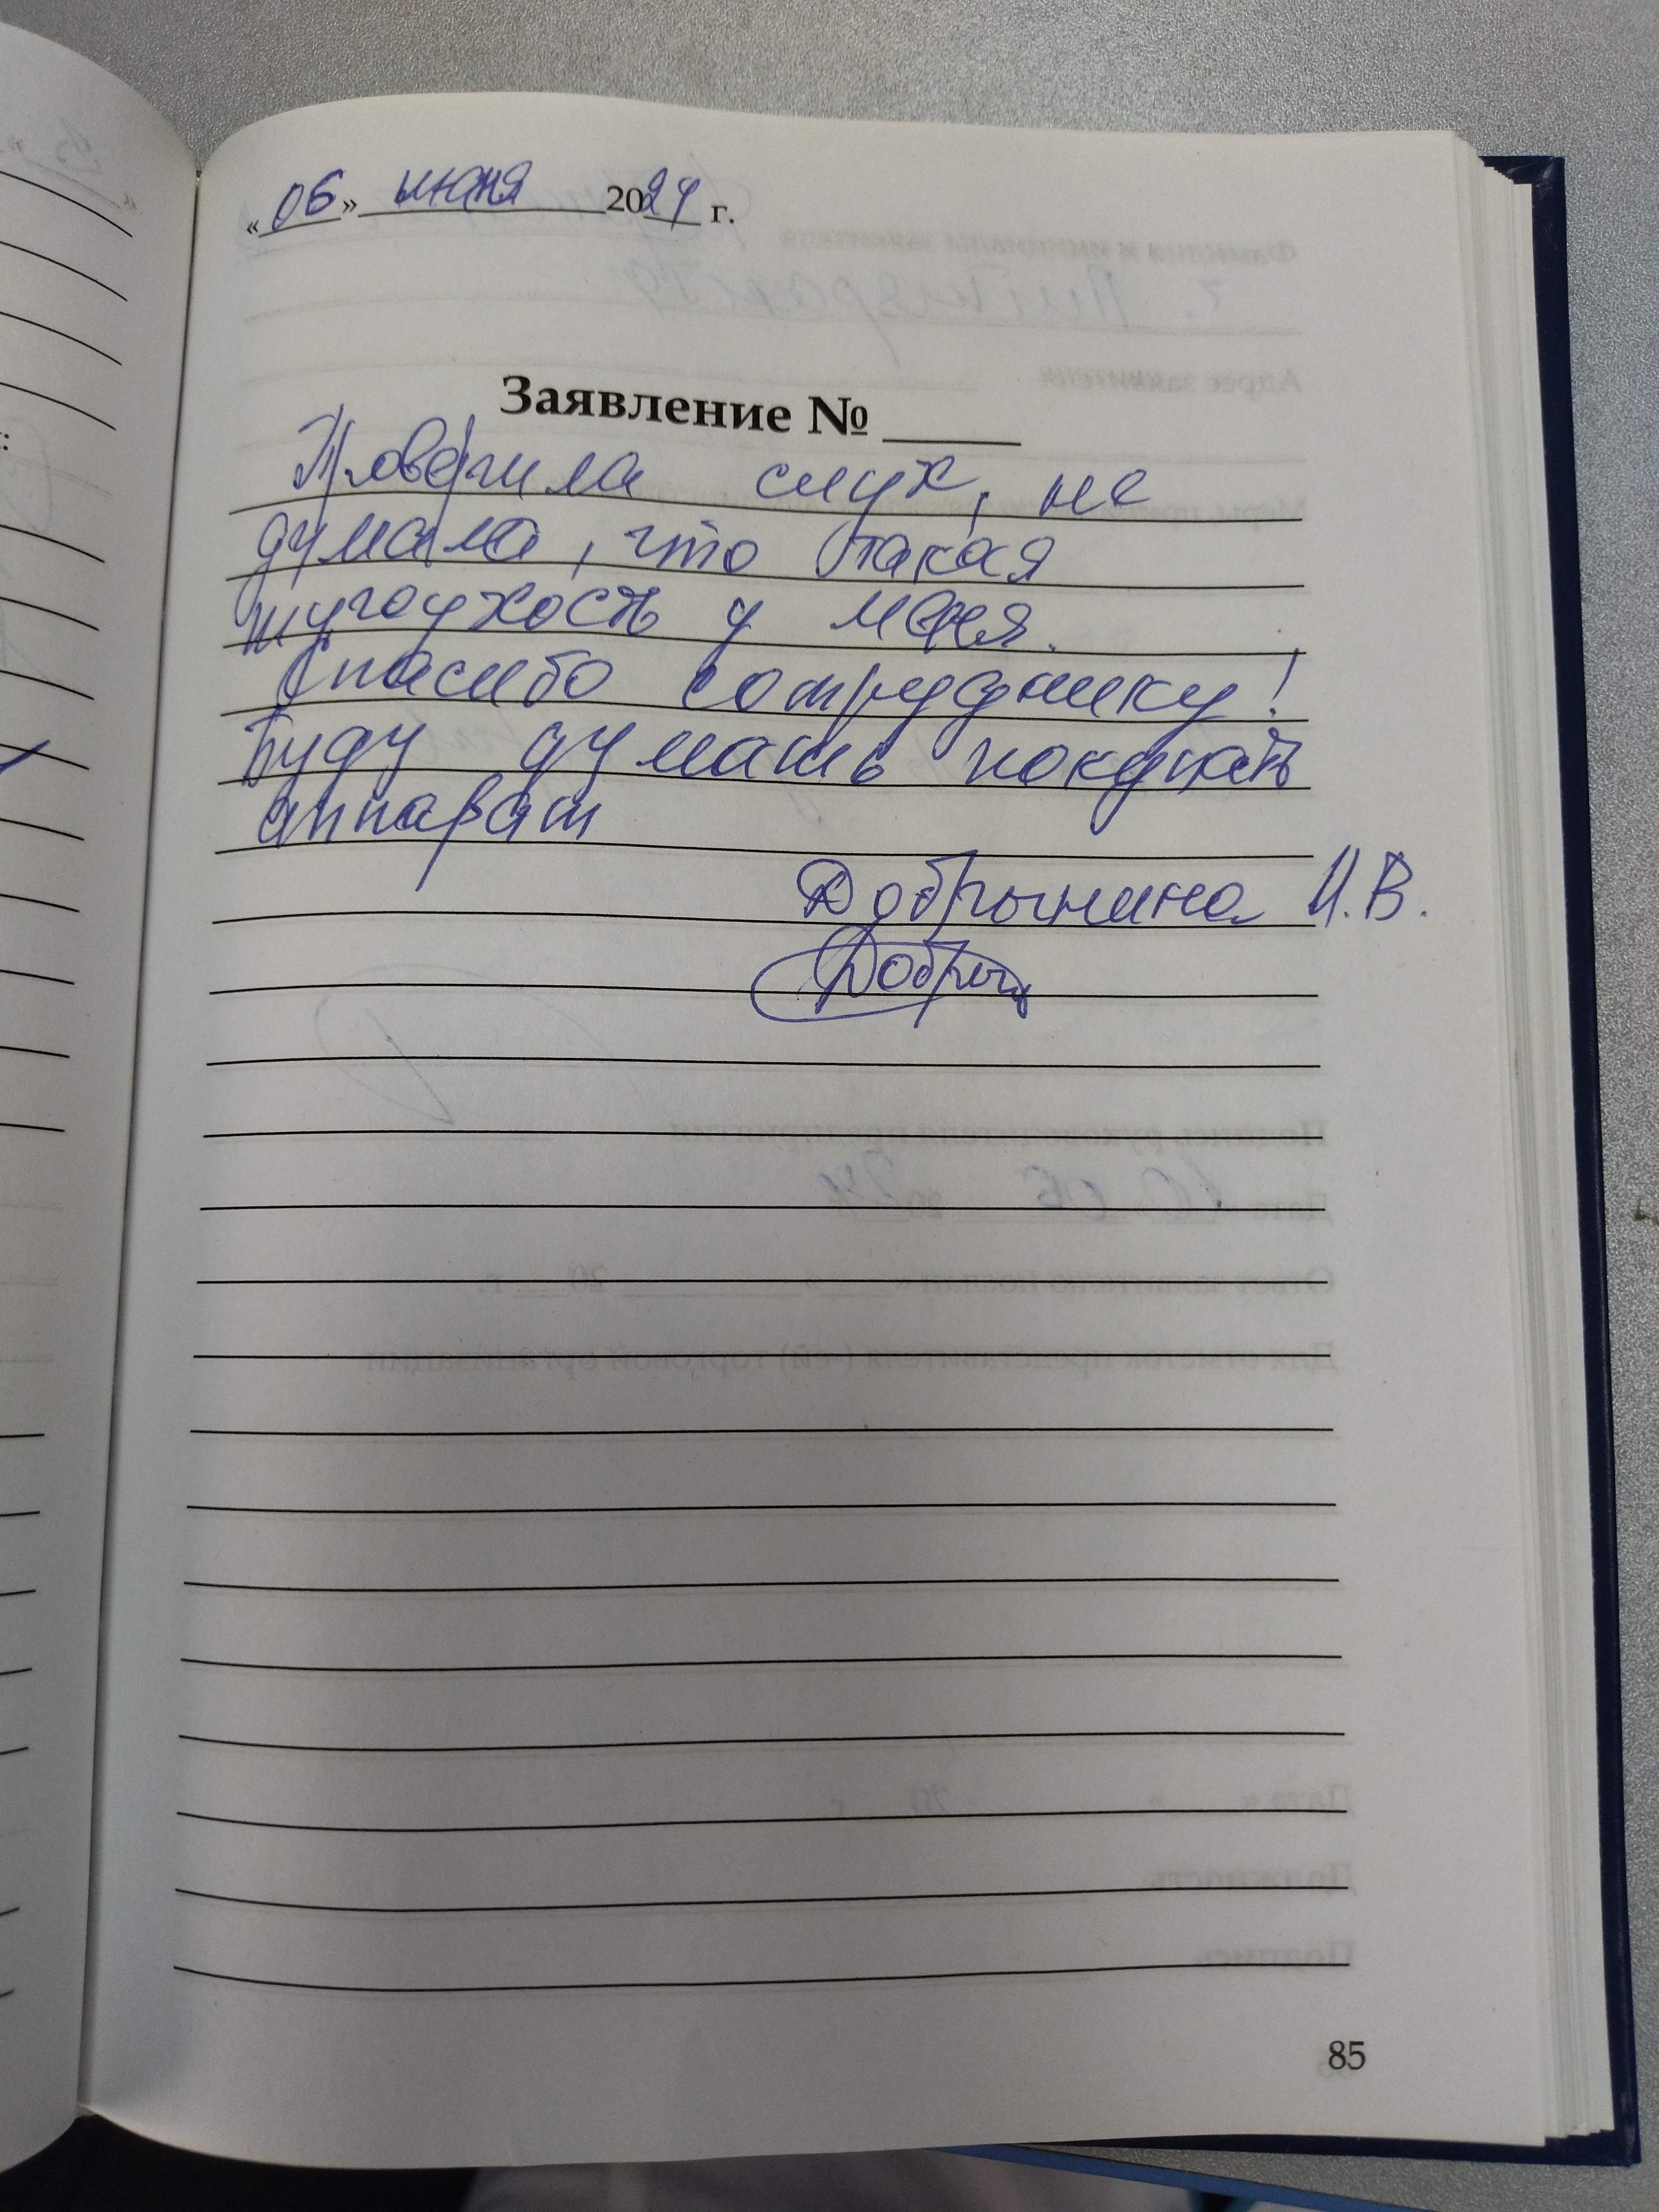 «06» июня 2024 г.
Заявление № ____
Проверила слух, не
думала, что такая
тугоухость у меня.
Спасибо сотруднику!
Буду думать покупать
аппарат
Добрынина И.В.
Добрын
85